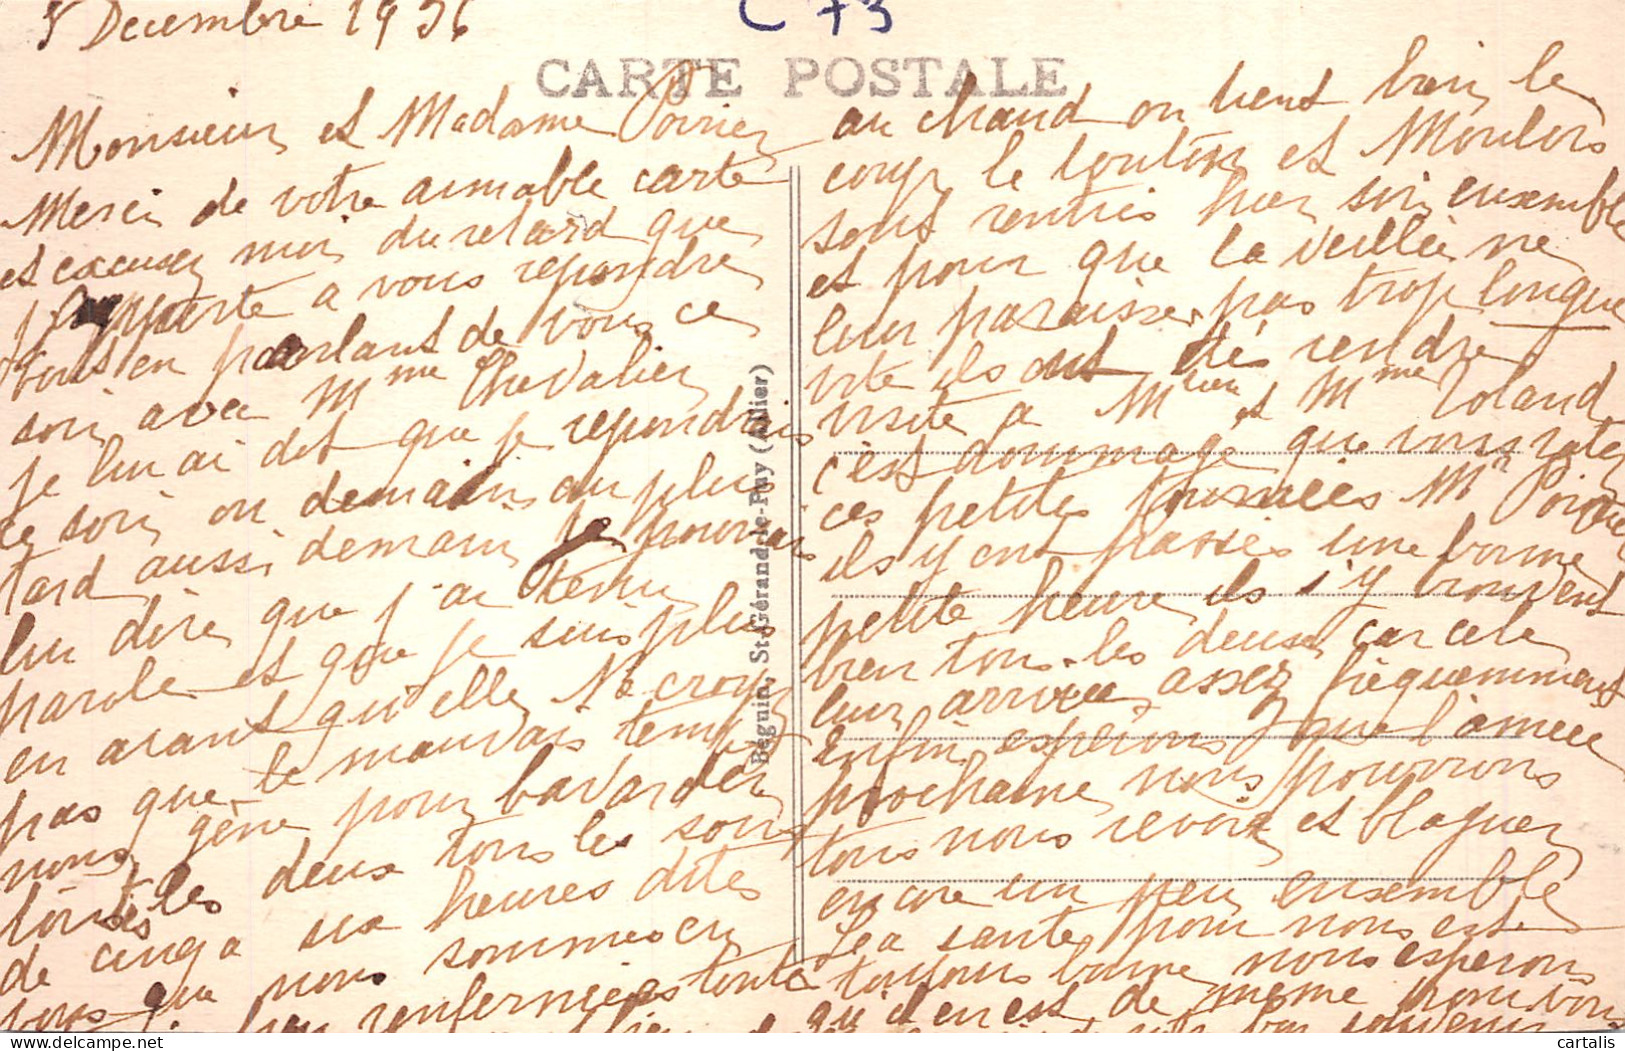 5 Decembre 1936
C 73
CARTE POSTALE
Monsieur et Madame Poirier
Merci de votre aimable carte
et excusez moi du retard que
j'apporte a vous repondre
tout en parlant de vous ce
soir avec Mme Chevalier
je lui ai dit que je repondrais
ce soir ou demain au plus
tard aussi demain je pourrais
lui dire que j'ai tenu
parole et que je suis plus
en avant qu'elle Ne croyez
pas que le mauvais temps
nous gène pour bavarder
toutes les deux tous les soirs
de cinq a six heures dites
vous que nous sommes
renfermées
Béguin, St-Gérand-le-Puy (Allier)
au chaud on tient bien le
coup le et Moulois
sont rentrés hier soir ensemble
et pour que la veillée ne
leur paraisse pas trop longue
vite ils ont étés rendre
visite a Msieu et Mme Roland
c'est dommage que vous ratez
ces petites tournées Mr Poirier
ils y ont passés une bonne
petite heure ils s'y trouvent
bien tous les deux car cela
leur arrive assez fréquemment
Enfin espérons que l'année
prochaine nous pourrons
tous nous revoir et blaguer
encore un peu ensemble
La santé pour nous est
toujours bonne nous esperons
qu'il en est de même pour vous
cartalis